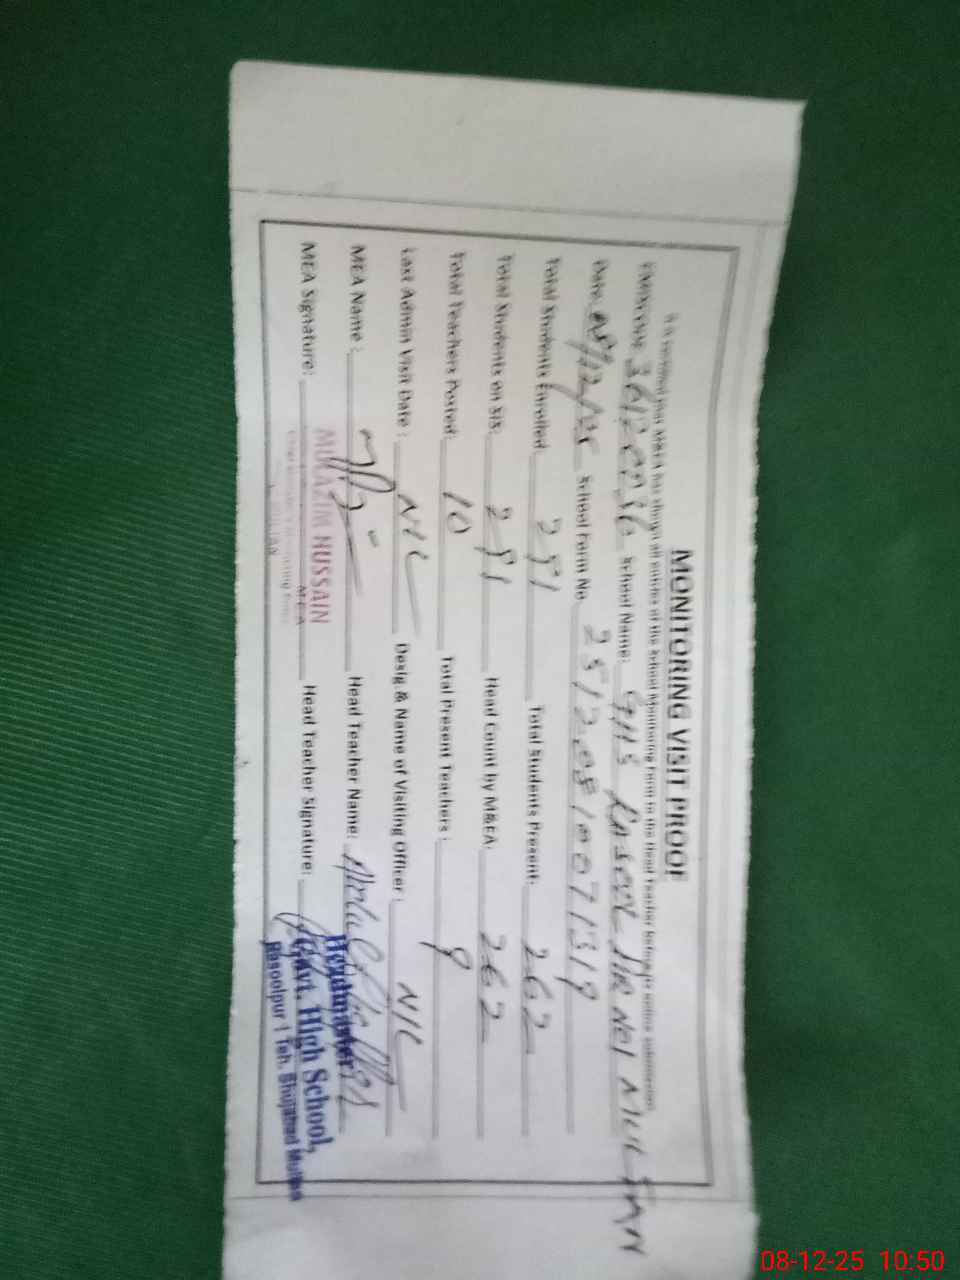 MONITORING VISIT PROOF
It is certified that M&EA has shown all entries of the School Monitoring Form to the Head Teacher before its online submission
EMISCODE 36120036 School Name: GHS RASOOL PUR NO1 MULTAN
Date 08/12/25 School Form No. 25120810071319
Total Students Enrolled: 291 Total Students Present: 262
Total Students on SIS: 291 Head Count by M&EA: 262
Total Teachers Posted: 10 Total Present Teachers: 9
Last Admin Visit Date: NIL Desig & Name of Visiting Officer: NIL
MEA Name: Head Teacher Name:
Headmaster
MEA Signature: Head Teacher Signature:
MULAZIM HUSSAIN
M.E.A
Govt. High School,
Rasoolpur 1 Teh. Shujabad Multan
08-12-25 10:50